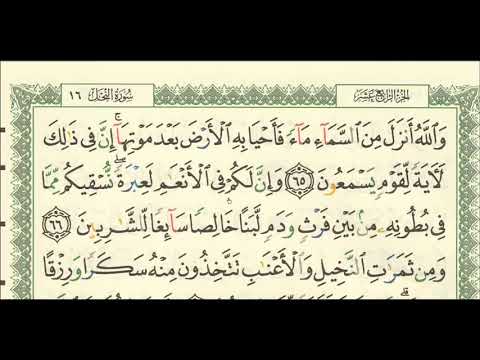 سُورَةُ النَّحْل ١٦ الجزءُ الرَّابِعَ عَشَرَ
وَٱللَّهُ أَنزَلَ مِنَ ٱلسَّمَآءِ مَآءً فَأَحْيَا بِهِ ٱلْأَرْضَ بَعْدَ مَوْتِهَآ ۚ إِنَّ فِى ذَٰلِكَ
لَـَٔايَةً لِّقَوْمٍ يَسْمَعُونَ ٦٥ وَإِنَّ لَكُمْ فِى ٱلْأَنْعَٰمِ لَعِبْرَةً ۖ نُّسْقِيكُم مِّمَّا
فِى بُطُونِهِۦ مِنۢ بَيْنِ فَرْثٍ وَدَمٍ لَّبَنًا خَالِصًا سَآئِغًا لِّلشَّٰرِبِينَ ٦٦
وَمِن ثَمَرَٰتِ ٱلنَّخِيلِ وَٱلْأَعْنَٰبِ تَتَّخِذُونَ مِنْهُ سَكَرًا وَرِزْقًا